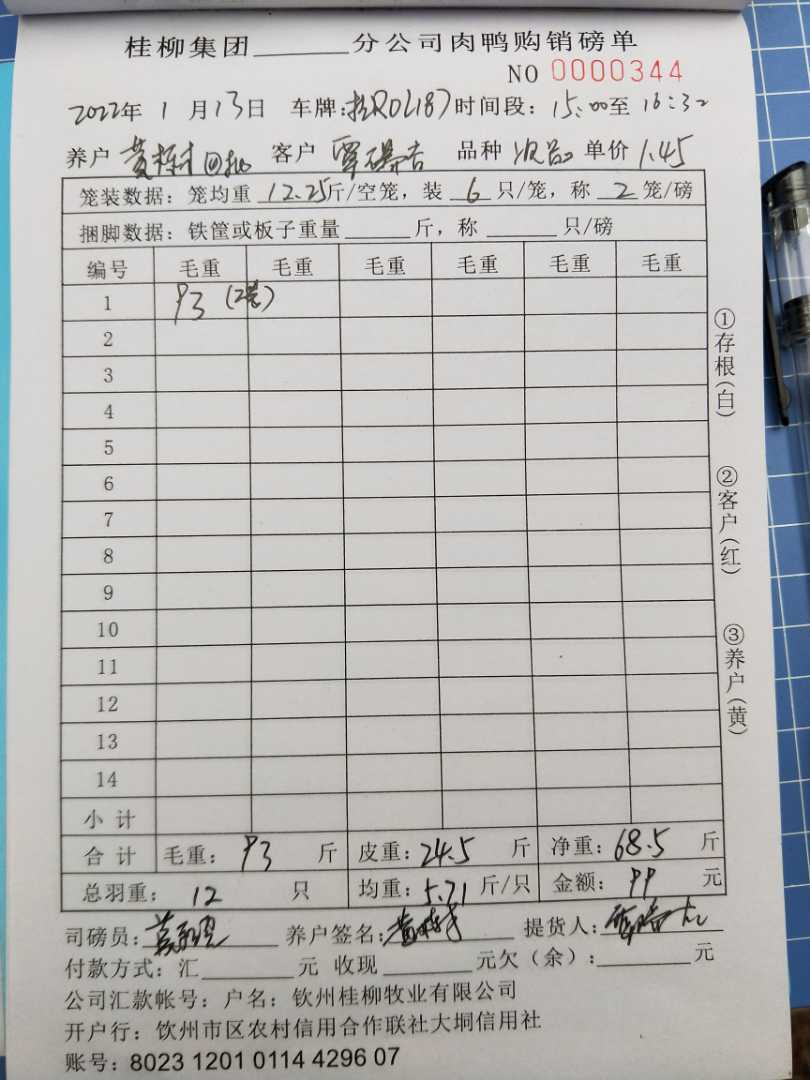 桂柳集团______分公司肉鸭购销磅单
NO 0000344
2022年 1 月 13日 车牌: R0L187 时间段: 15:00至 16:32
养户 黄 客户 覃 品种 次品 单价 1.45
笼装数据: 笼均重 12.25斤/空笼, 装 6 只/笼, 称 2 笼/磅
捆脚数据: 铁筐或板子重量______斤, 称______只/磅
编号 毛重 毛重 毛重 毛重 毛重 毛重
1 93 (2笼)
2
3
4
5
6
7
8
9
10
11
12
13
14
小 计
合 计 毛重: 93 斤 皮重: 24.5 斤 净重: 68.5 斤
总羽重: 12 只 均重: 5.71 斤/只 金额: 99 元
司磅员: 养户签名: 提货人:
付款方式: 汇______元 收现______元欠(余):______元
公司汇款帐号: 户名: 钦州桂柳牧业有限公司
开户行: 钦州市区农村信用合作联社大垌信用社
账号: 8023 1201 0114 4296 07
①存根(白)
②客户(红)
③养户(黄)